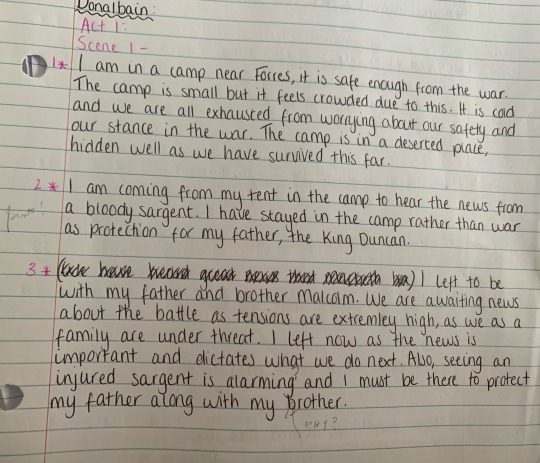 Donalbain:
Act 1:
Scene 1 -
1* I am in a camp near Forres, it is safe enough from the war.
The camp is small but it feels crowded due to this. It is cold
and we are all exhausted from worrying about our safety and
our stance in the war. The camp is in a deserted place,
hidden well as we have survived this far.
2 * I am coming from my tent in the camp to hear the news from
a bloody sargent. I have stayed in the camp rather than war
as protection for my father, the King Duncan.
3 * I left to be
with my father and brother Malcolm. We are awaiting news
about the battle as tensions are extremley high, as we as a
family are under threat. I left now as the news is
important and dictates what we do next. Also, seeing an
injured sargent is alarming and I must be there to protect
my father along with my brother.
why?